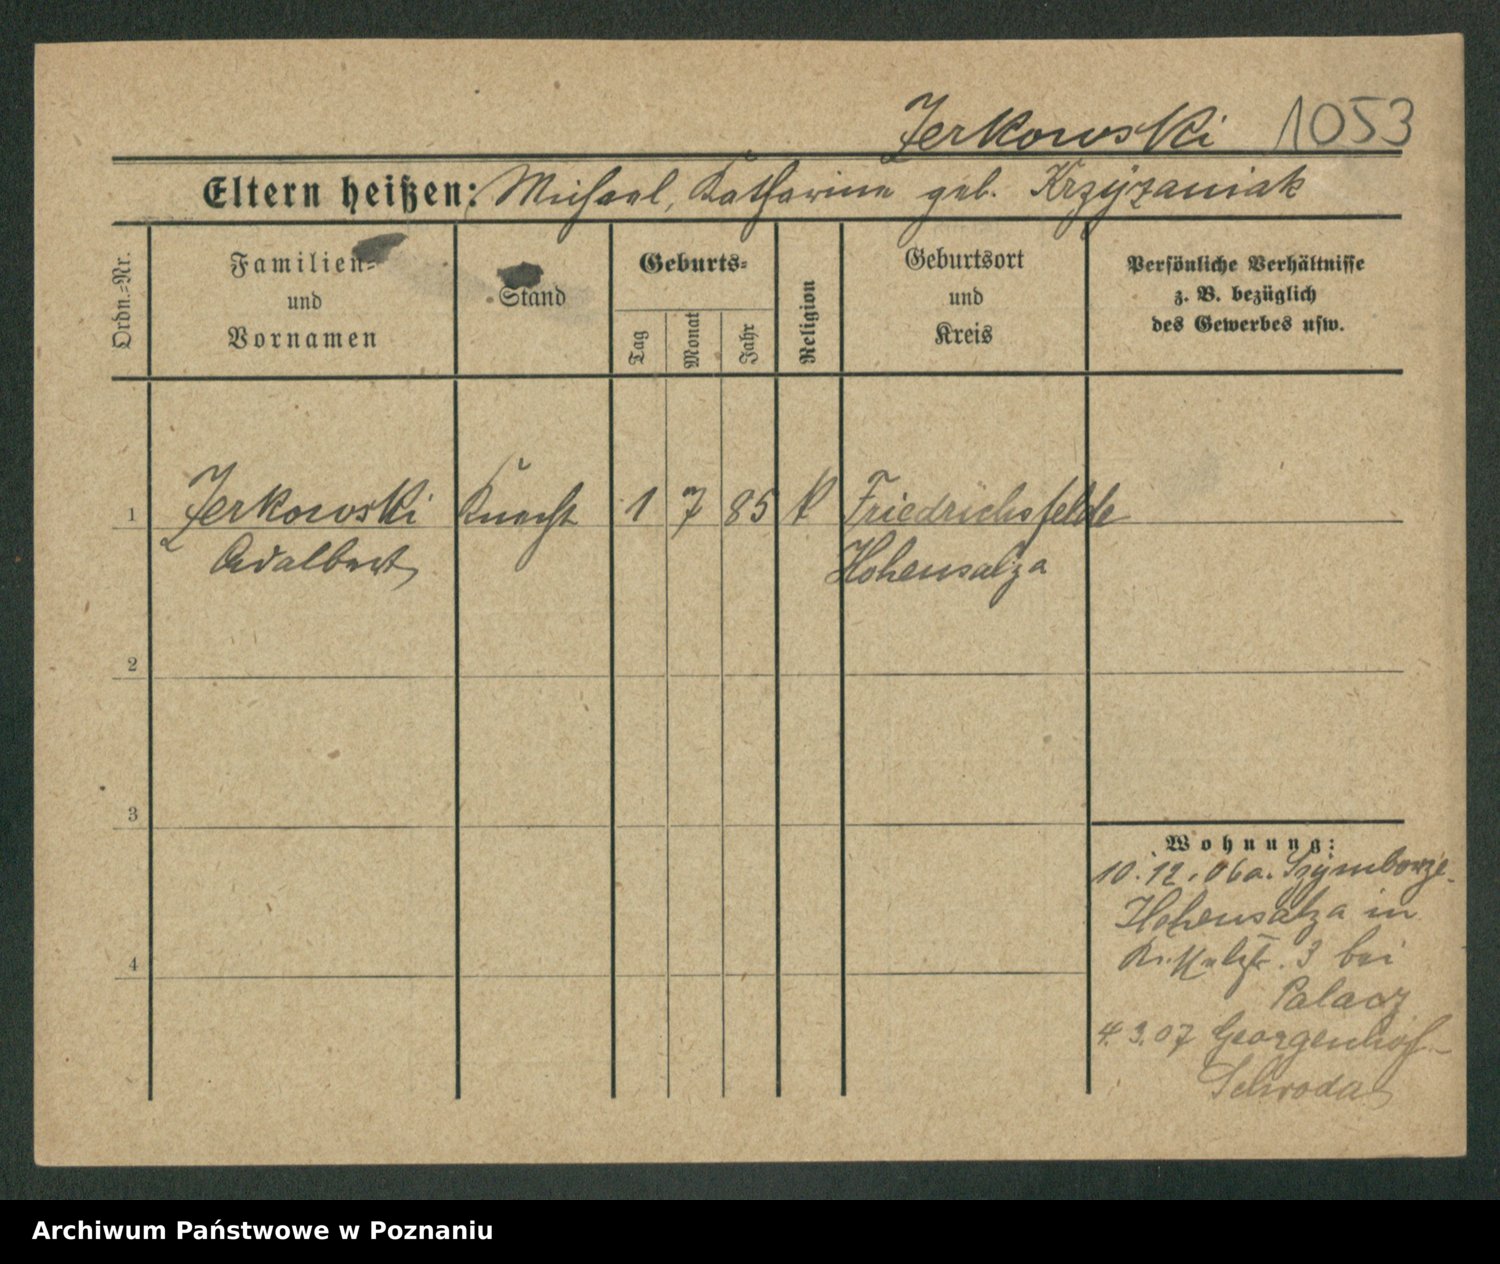 Jerkowski 1053
Eltern heißen: Michael, Katharina geb. Krzyżaniak
Ordn.=Nr.
Familien=
und
Vornamen
Stand
Geburts=
Tag
Monat
Jahr
Religion
Geburtsort
und
Kreis
Persönliche Verhältnisse
z. B. bezüglich
des Gewerbes usw.
1 Jerkowski Knecht 1 7 85 k Friedrichsfelde
Adalbert Hohensalza
2
3
Wohnung:
10.12.06 a. Szymborze
Hohensalza in
3 bei
4
Palacz
4.3.07 Georgenhof
Schroda
Archiwum Państwowe w Poznaniu